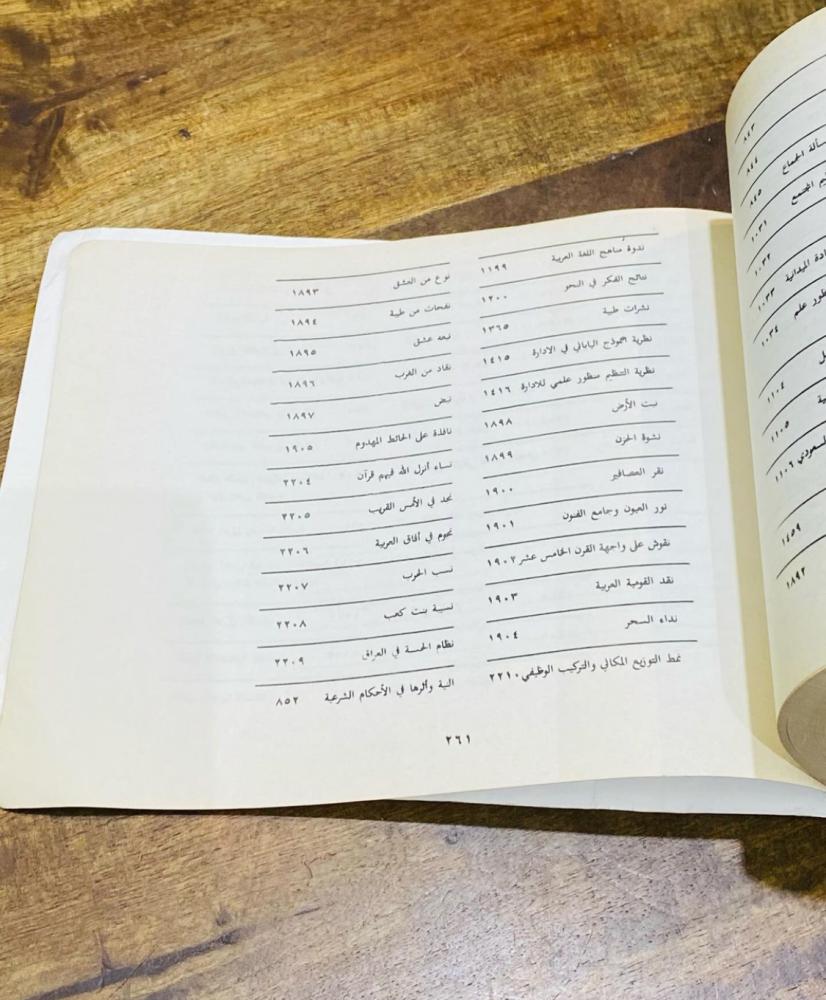 ندوة مناهج اللغة العربية ١١٩٩
نتائج الفكر في النحو ١٢٠٠
نشرات طبية ١٣٦٥
نظرية النموذج الياباني في الادارة ١٤١٥
نظرية التنظيم منظور علمي للادارة ١٤١٦
نبت الأرض ١٨٩٨
نشوة الحزن ١٨٩٩
نقر العصافير ١٩٠٠
نور العيون وجامع الفنون ١٩٠١
نقوش على واجهة القرن الخامس عشر ١٩٠٢
نقد القومية العربية ١٩٠٣
نداء السحر ١٩٠٤
نمط التوزيع المكاني والتركيب الوظيفي ٢٢١٠
نوع من العشق ١٨٩٣
نفحات من طيبة ١٨٩٤
نبعه عشق ١٨٩٥
نقاد من الغرب ١٨٩٦
نبض ١٨٩٧
نافذة على الحائط المهدوم ١٩٠٥
نساء أنزل الله فيهم قرآن ٢٢٠٤
نجد في الأمس القريب ٢٢٠٥
نجوم في أفاق العربية ٢٢٠٦
نسب الحرب ٢٢٠٧
نسيبة بنت كعب ٢٢٠٨
نظام الحسبة في العراق ٢٢٠٩
النية وأثرها في الأحكام الشرعية ٨٥٢
٢٦١
٨٤٣
٨٤٤
سألة الجماع ٨٤٥
المجتمع ١٠٣١
١٠٣٢
الميدانية ١٠٣٣
علم ١٠٣٤
١١٠٤
١١٠٥
السعودي ١١٠٦
١٤٥٩
١٨٩٢